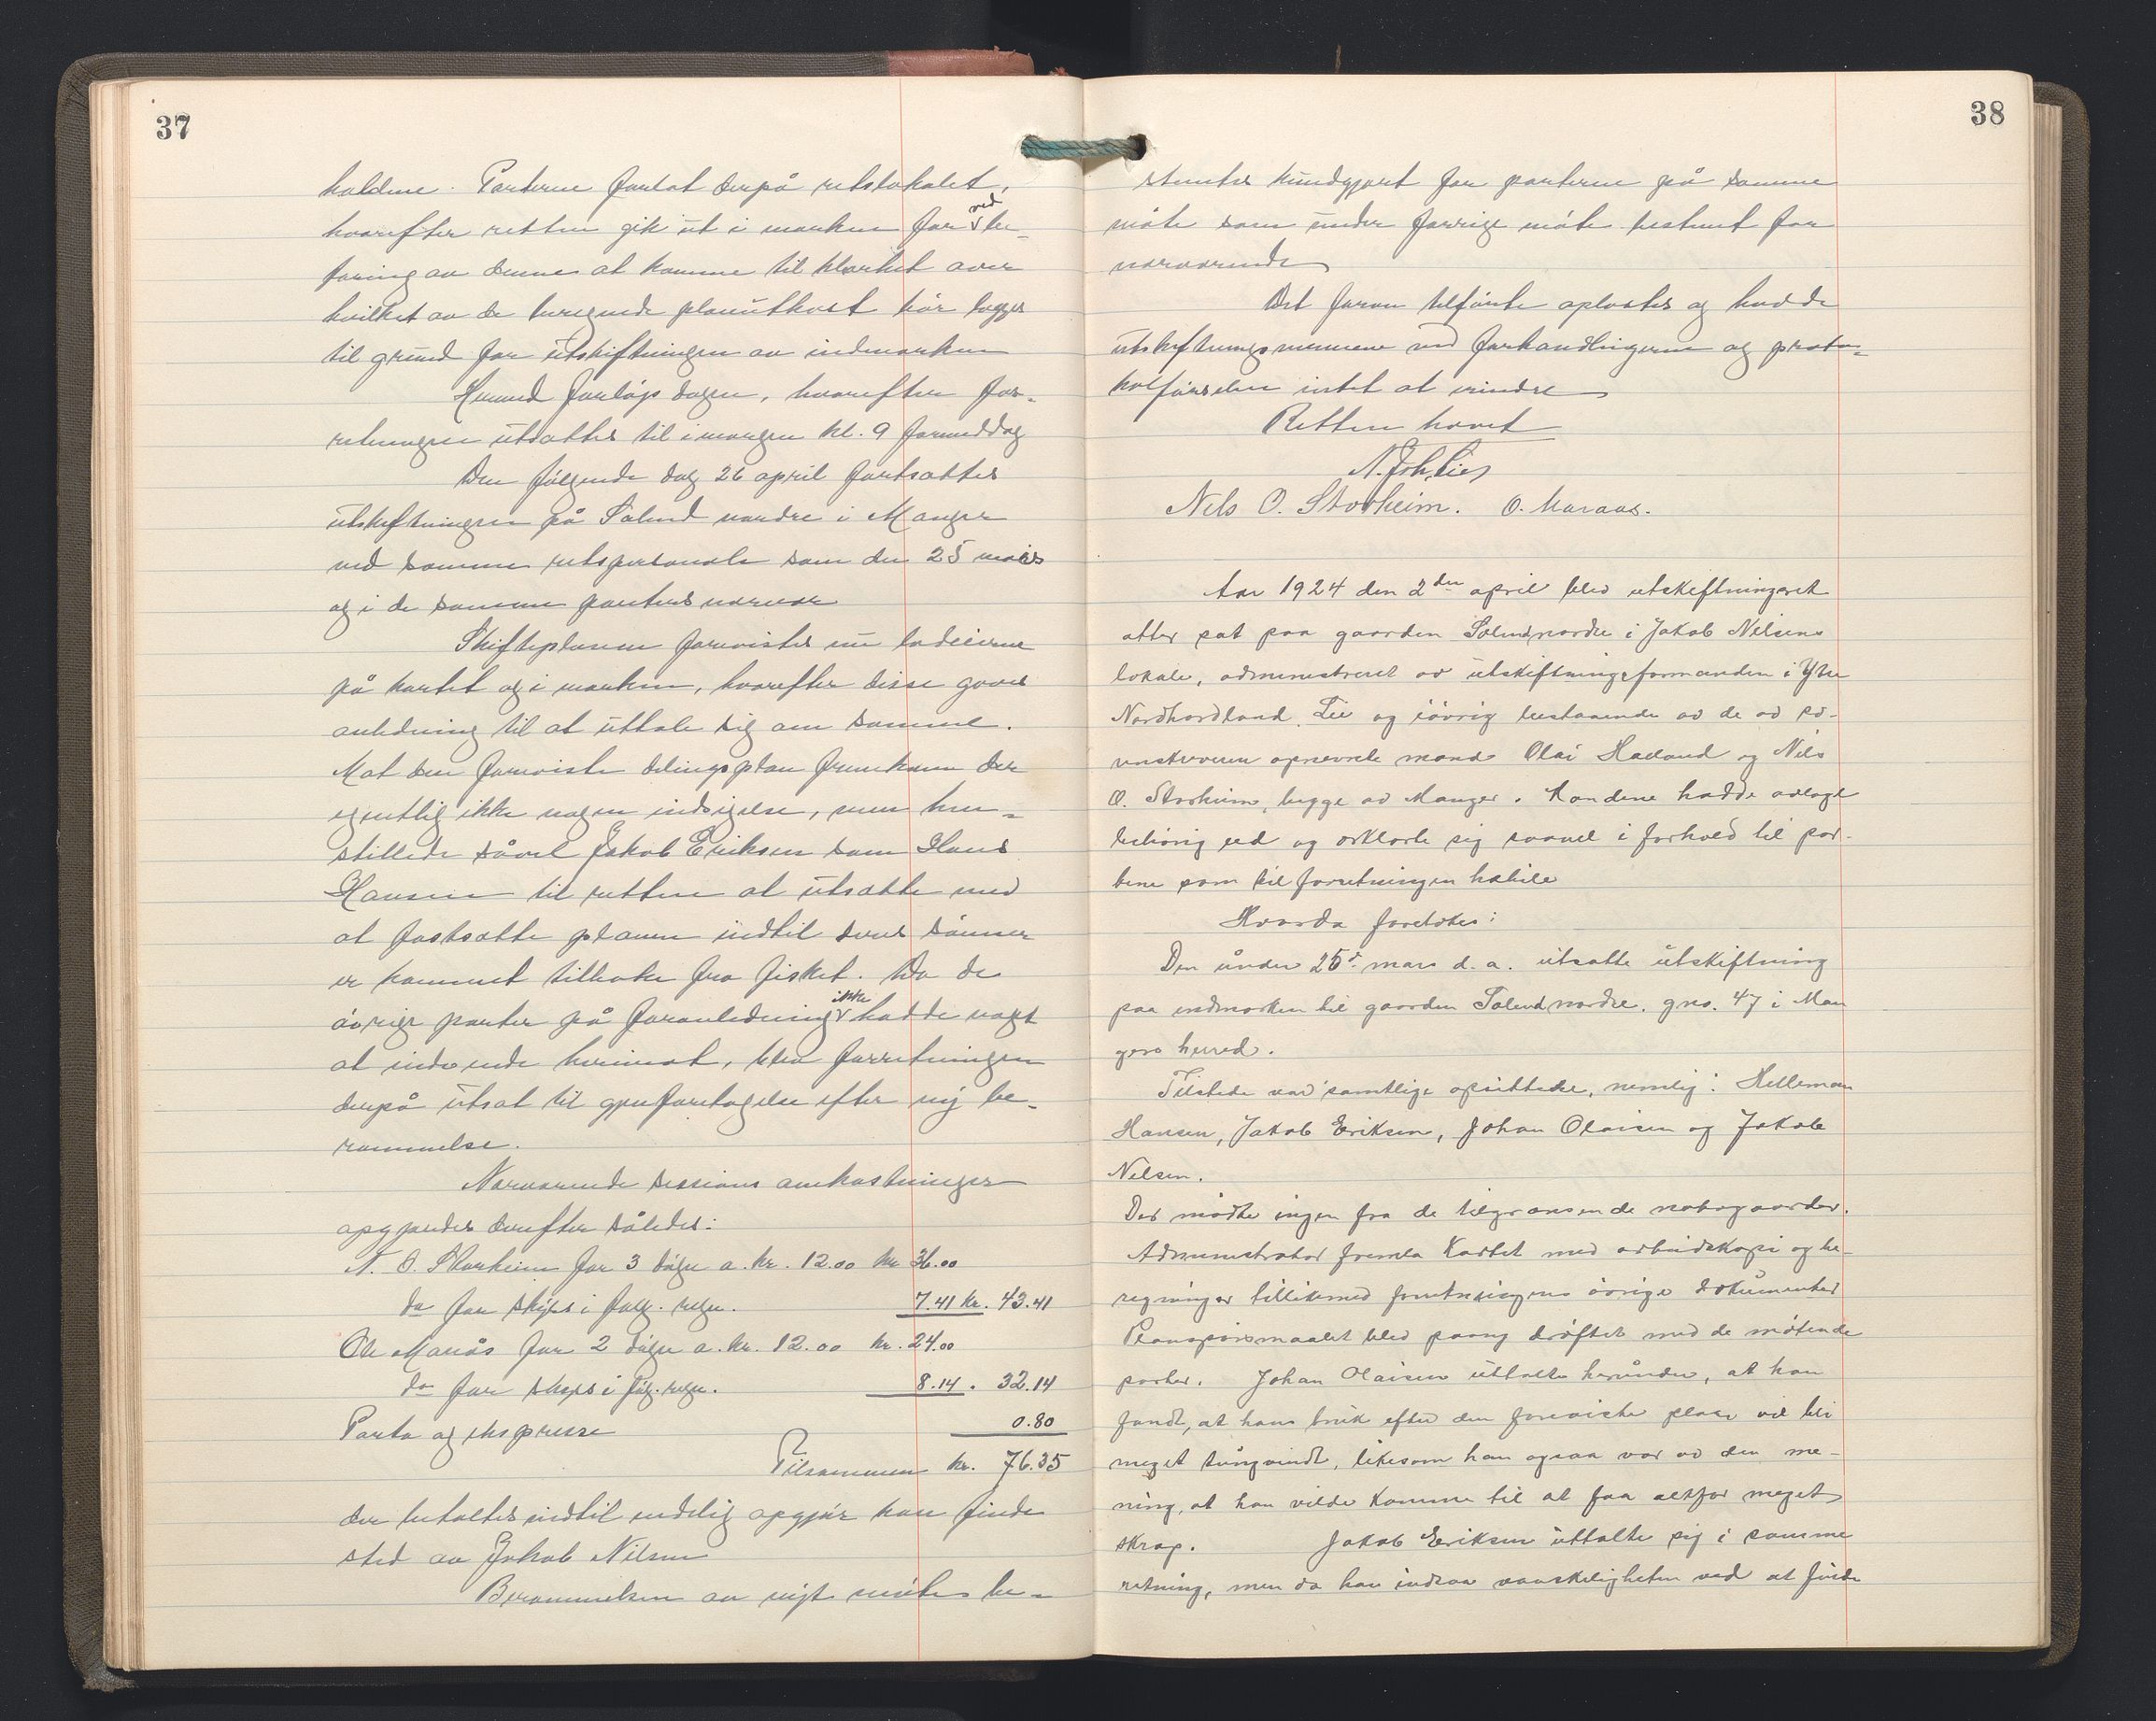 37
holdene. Parterne forlot derpå retslokalet,
hvorefter retten gik ut i marken for ved be-
faring av denne at komme til klarhet over
hvilket av de beregnede planutkast bør lægges
til grund for utskiftningen av indmarken
Hermed forløp dagen, hvorefter for-
retningen utsattes til imorgen kl. 9 formiddag
Den følgende dag 26 april fortsattes
utskiftningen på Solend nordre i Manger
ved samme retspersonale som den 25 mars
og i de samme parters nærvær
Skifteplanen forevistes nu lodeierne
på kartet og i marken, hvorefter disse gaves
anledning til at uttale sig om samme.
Mot den foreviste delingsplan fremkom der
egentlig ikke nogen indsigelse, men hen-
stillede såvel Jakob Eriksen som Hans
Hansen til retten at utsætte med
at fastsætte planen indtil deres sønner
er kommet tilbake fra fisket. Da de
øvrige parter på foranledning ikke hadde noget
at indvende herimot, blev forretningen
derpå utsat til gjenforetagelse efter ny be-
rammelse.
Nærværende sessions omkostninger
opgjordes derefter således:
N. O. Storheim for 3 døgn a. kr. 12.00 kr 36.00
do for skyss i følg. regn. 7.41 kr. 43.41
Ole Marås for 2 døgn a. kr. 12.00 kr. 24.00
do for skyss i følg. regn. 8.14 . 32.14
Porto og ekspresse 0.80
Tilsammen kr. 76.35
der betaltes indtil endelig opgjør kan finde
sted av Jakob Nilsen
Berammelsen av nyt møte be-
38
stemtes kundgjort for parterne på samme
måte som under forrige møte bestemt for
nærværende
Det foran tilførte oplæstes og hadde
utskiftningsmennene ved forhandlingerne og proto-
kolførselen intet at erindre
Retten hævet
N. Joh. Lie
Nils O. Storheim. O. Maraas.
Aar 1924 den 2den april blev utskiftningsret
atter sat paa gaarden Solend nordre i Jakob Nilsens
lokale, administreret av utskiftningsformanden i Ytre
Nordhordland Lie og iøvrig bestaaende av de av so-
renskriveren opnævnte mænd Olai Hadland og Nils
O. Storheim, begge av Manger. Mændene hadde avlagt
behørig ed og erklærte sig saavel i forhold til par-
tene som til forretningen habile
Hvorda foretokes:
Den under 25de mars d. a. utsatte utskiftning
paa indmarken til gaarden Solend nordre. gno. 47 i Man
gers herred.
Tilstede var samtlige opsittere, nemlig: Helleman
Hansen, Jakob Eriksen, Johan Olaisen og Jakob
Nilsen.
Der mødte ingen fra de tilgrænsende nabogaarder.
Administrator fremla Kartet med arbeidskopi og be-
regninger tillikemed forretningens øvrige dokumenter
Planspørsmaalet blev paany drøftet med de møtende
parter. Johan Olaisen uttalte herunder, at han
fandt, at hans bruk efter den foreviste plan vil bli
meget tungvindt, likesom han ogsaa var av den me-
ning, at han vilde komme til at faa altfor meget
skrap. Jakob Eriksen uttalte sig i samme
retning, men da han indsaa vanskeligheten ved at finde